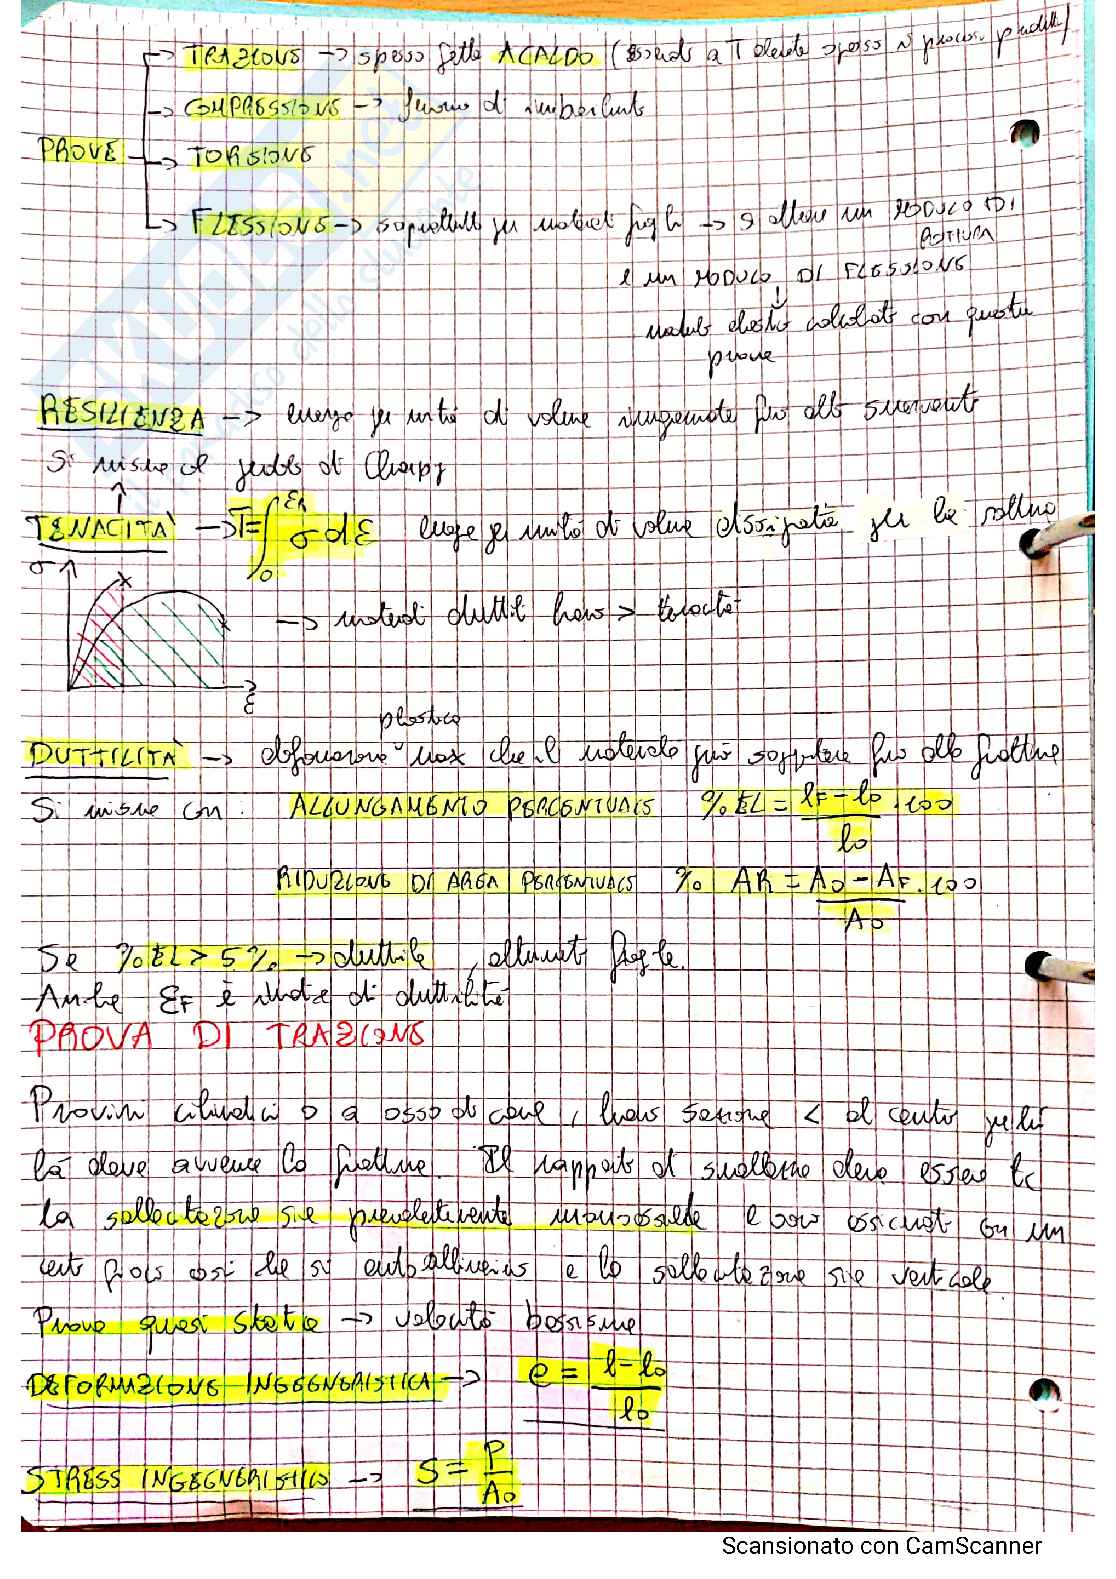 TRAZIONE → spesso fatta A CALDO (essendo a T elevate spesso i processi produttivi)
COMPRESSIONE → fenomeno di imbarilamento
PROVE → TORSIONE
FLESSIONE → soprattutto per materiali fragili → si ottiene un MODULO DI
ROTTURA
e un MODULO DI FLESSIONE
↓
modulo elastico calcolato con questa
prova
RESILIENZA → energia per unità di volume immagazzinata fino allo snervamento
Si misura col pendolo di Charpy
↑
TENACITÀ → T = ∫₀^εR σ dε energia per unità di volume dissipata per la rottura
σ ↑
→ materiali duttili hanno > tenacità
ε
plastica
DUTTILITÀ → deformazione max che il materiale può sopportare fino alla frattura
Si misura con: ALLUNGAMENTO PERCENTUALE %EL = (lF - l0)/l0 · 100
RIDUZIONE DI AREA PERCENTUALE % AR = (A0 - AF)/A0 · 100
Se %EL > 5% → duttile, altrimenti fragile.
Anche εF è indice di duttilità
PROVA DI TRAZIONE
Provini cilindrici o a osso di cane, hanno sezione < al centro perché
là deve avvenire la frattura. Il rapporto di snellezza deve essere tc
la sollecitazione sia prevalentemente monoassiale e sono assicurati con un
certo gioco così che si autoallineino e la sollecitazione sia verticale.
Prova quasi statica → velocità bassissime
DEFORMAZIONE INGEGNERISTICA → e = (l - l0)/l0
STRESS INGEGNERISTICO → S = P/A0
Scansionato con CamScanner